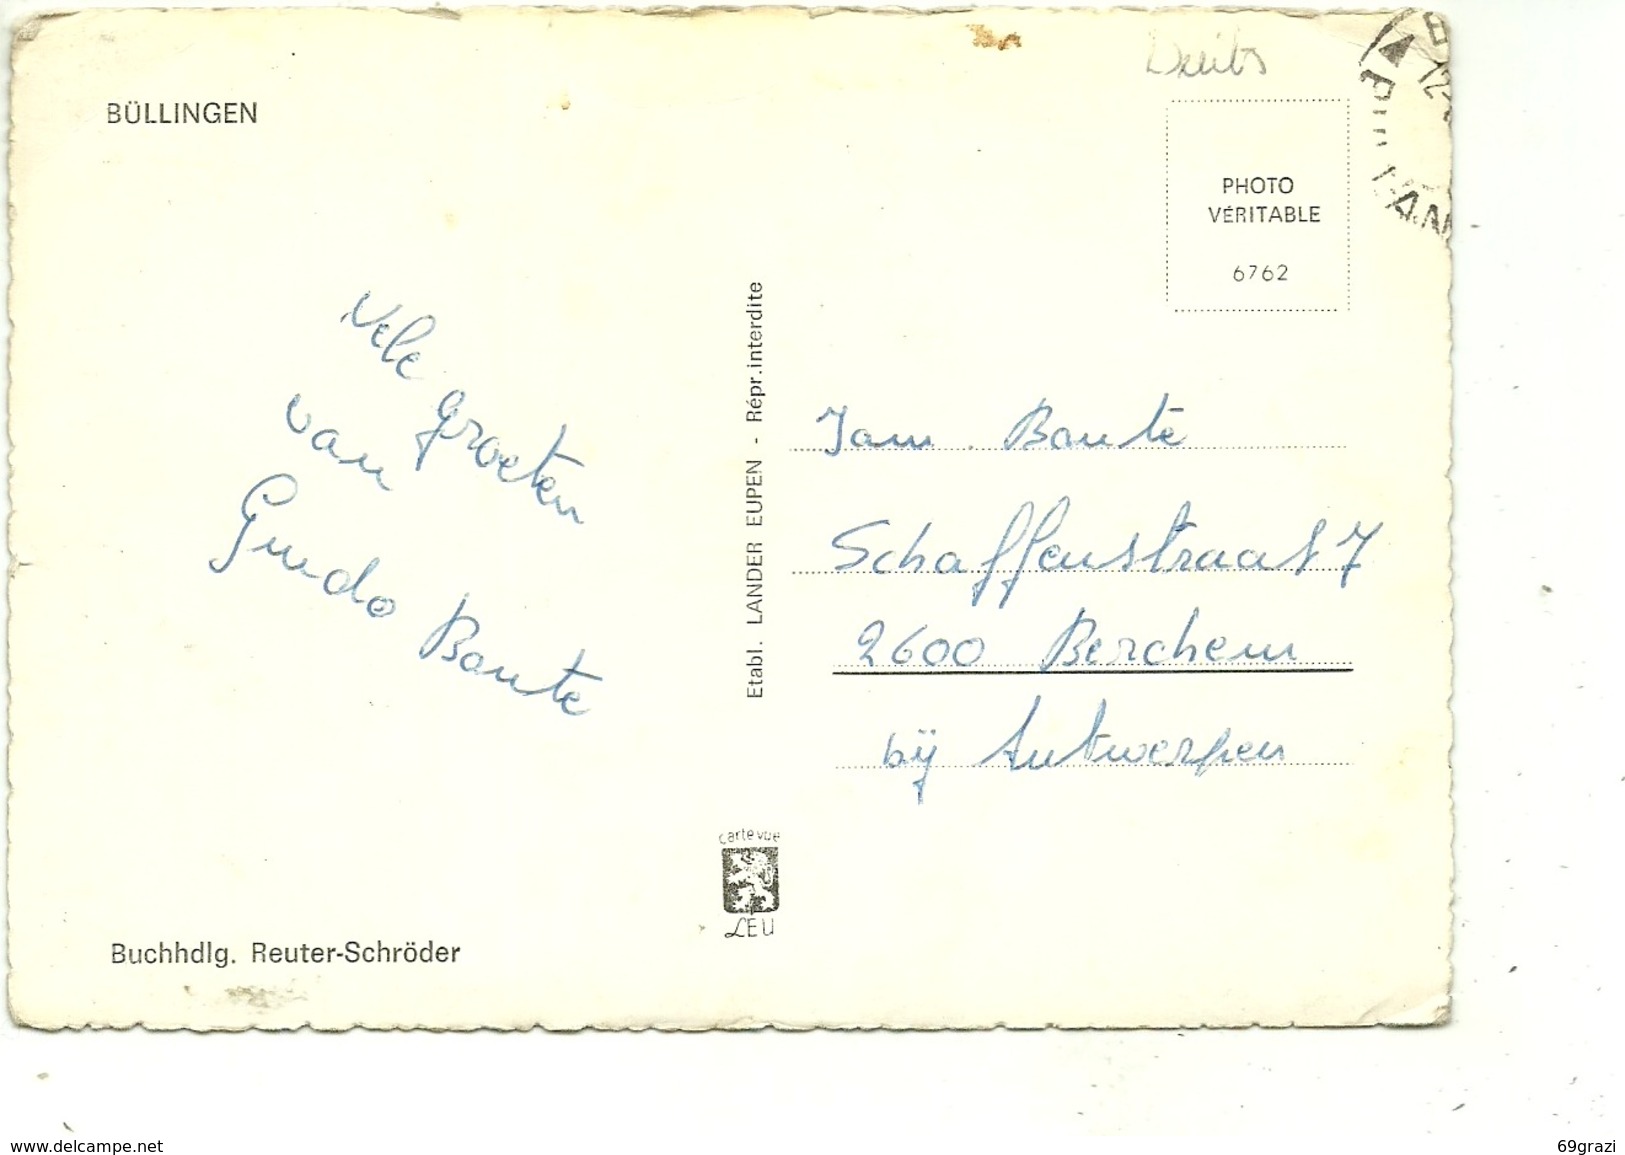 BÜLLINGEN
PHOTO
VÉRITABLE
6762
Vele groeten
van
Guido Baute
Etabl. LANDER EUPEN - Répr. interdite
Fam. Baute
Schaffenstraat 7
2600 Berchem
bij Antwerpen
carte vue
LEU
Buchhdlg. Reuter-Schröder
www.delcampe.net
69grazi